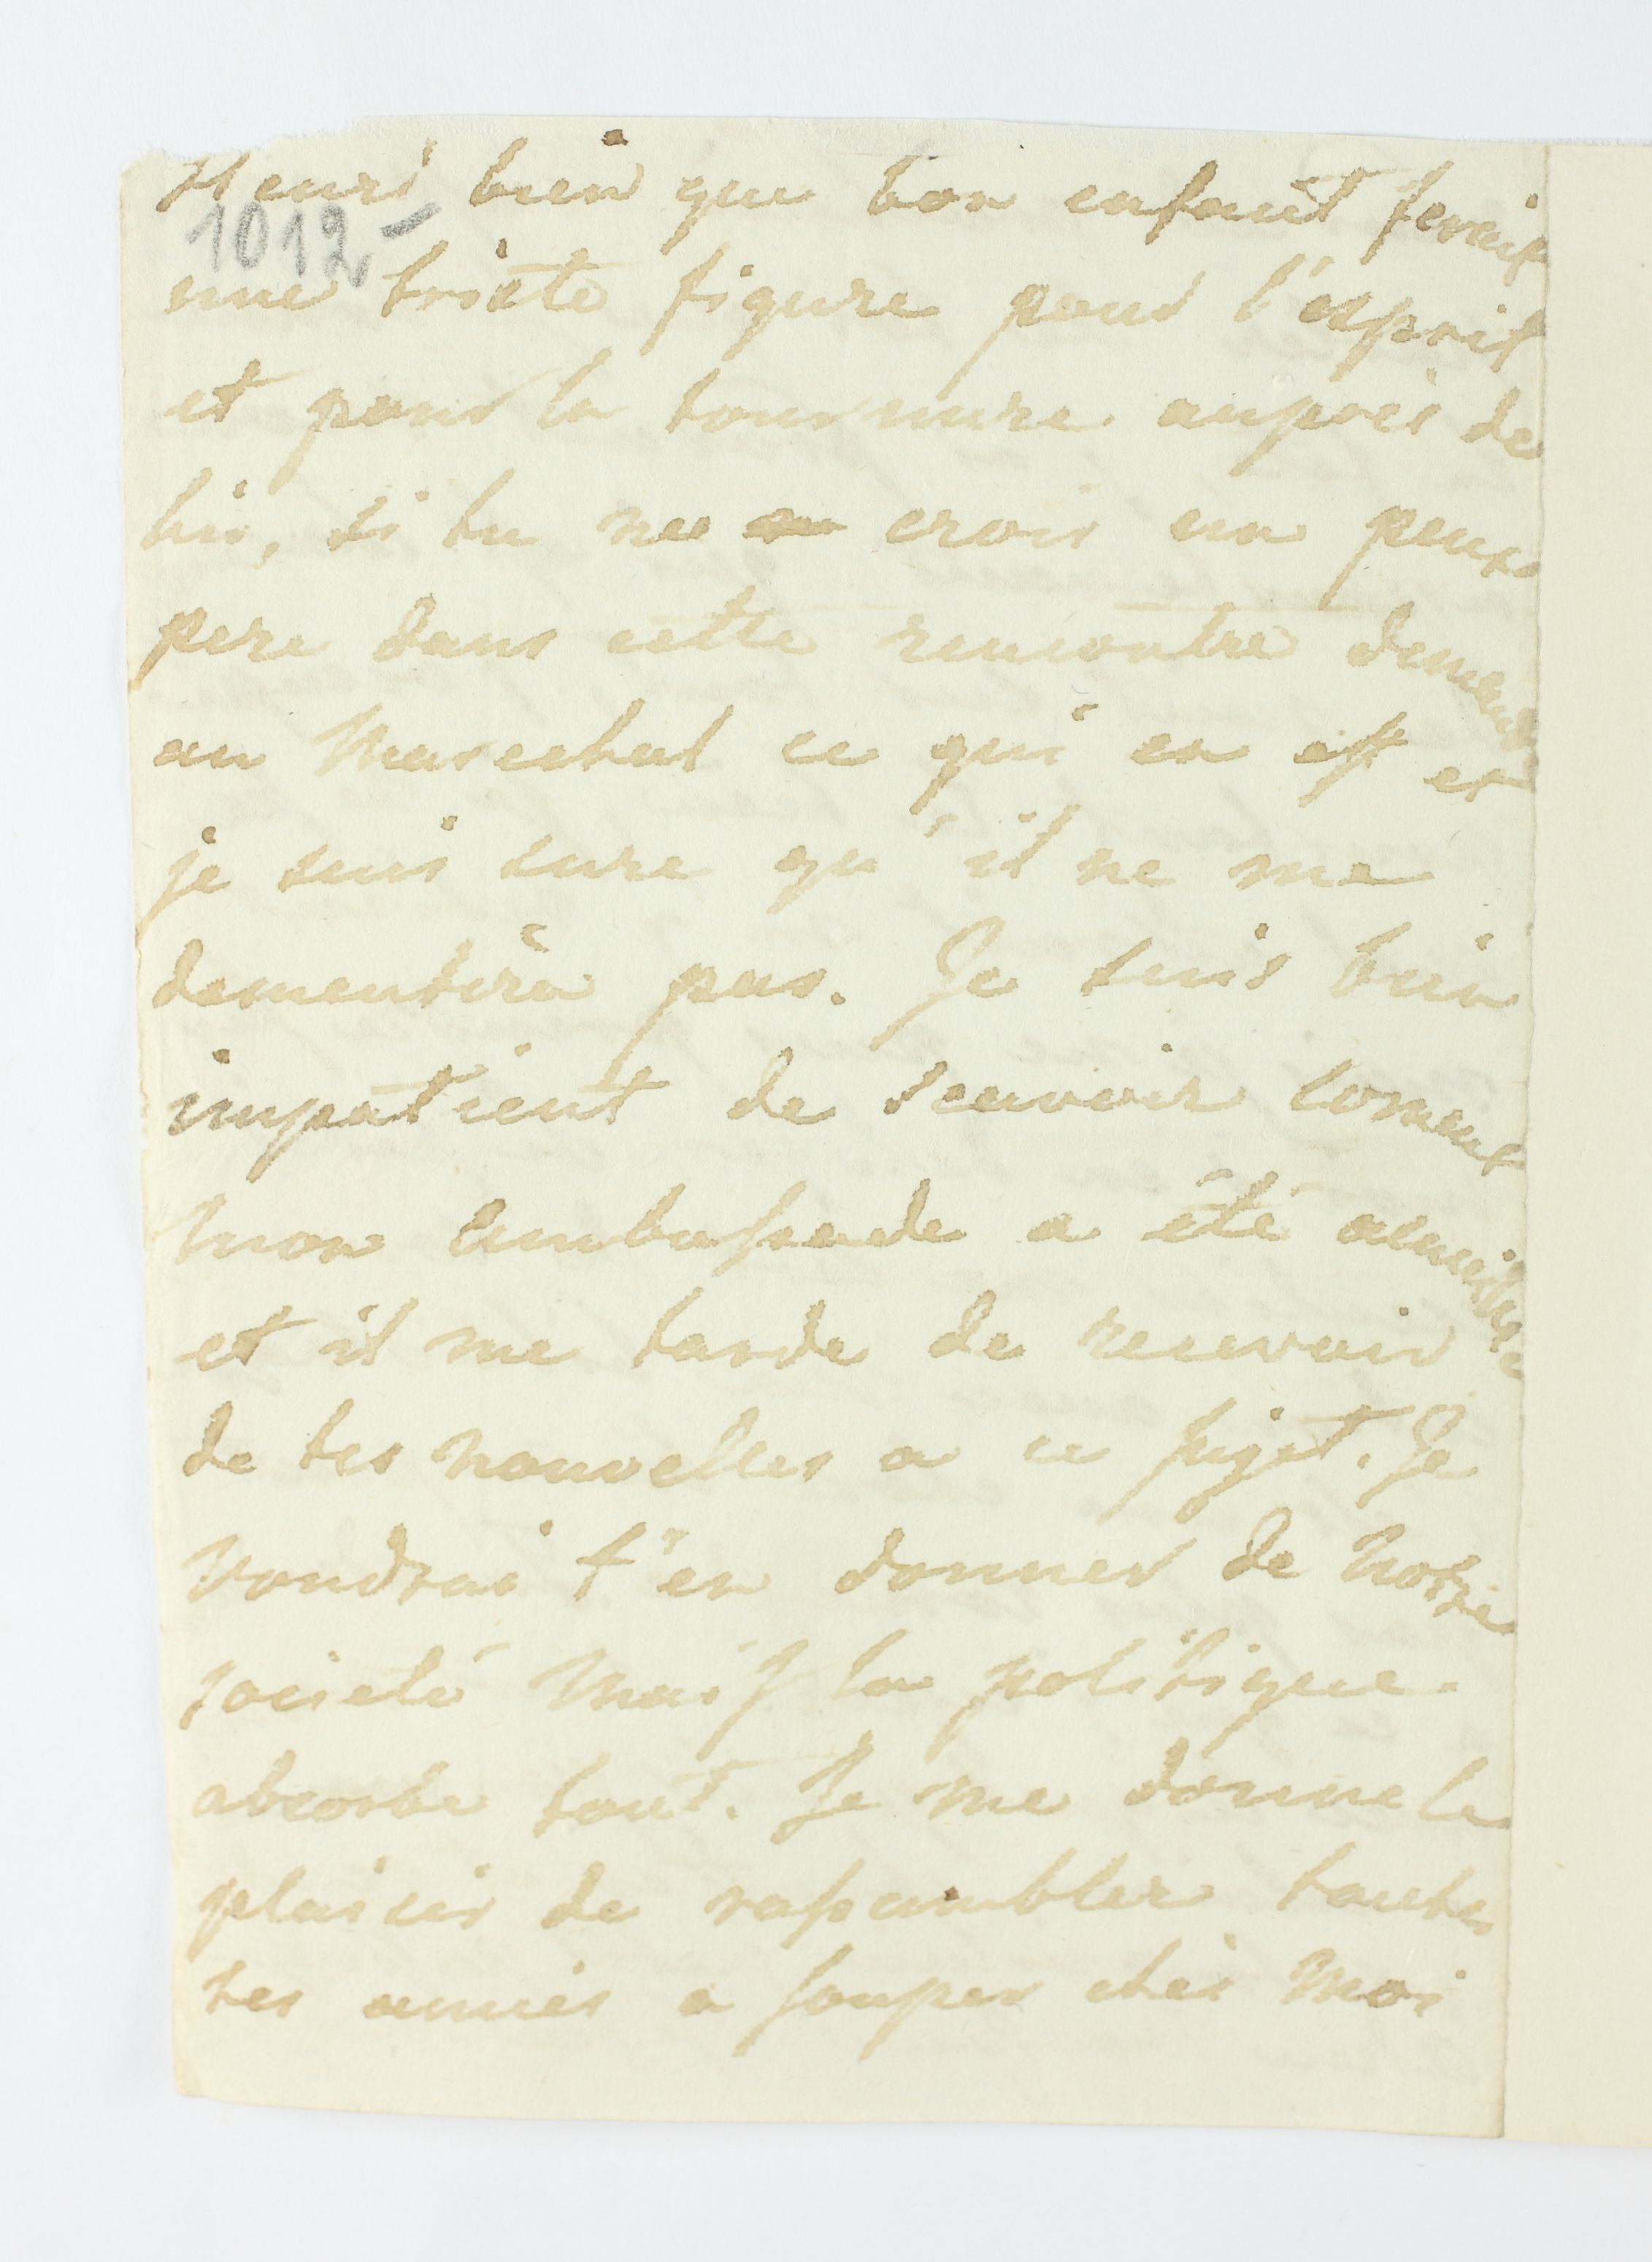 Henri bien que bon enfant feroit
1012-
une triste figure pour l'esprit
et pour la tournure auprès de
lui, si tu ne crois en
pere dans cette rencontre demande
au Marechal ce qui en est et
je suis sure qu'il ne me
dementira pas. Je suis bien
impatient de scavoir coment
Mon Ambassade a été accueillie
et il me tarde de recevoir
de tes nouvelles a ce sujet. Je
voudrai t'en donner de Notre
societé Mais la politique
absorbe tout. Je me donne le
plaisir de rassembler toutes
tes amies a souper chès Moi